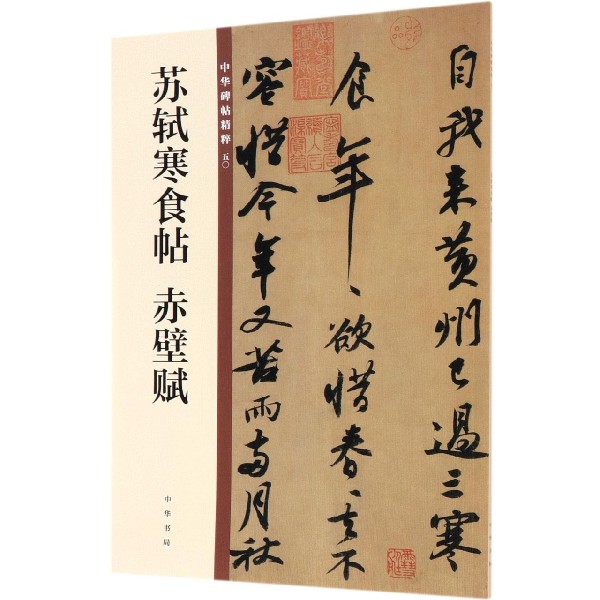 苏轼寒食帖 赤壁赋
中华书局
中华碑帖精粹 五〇
自我来黄州已過三寒
食年、欲惜春、去不
容惜今年又苦雨两月秋